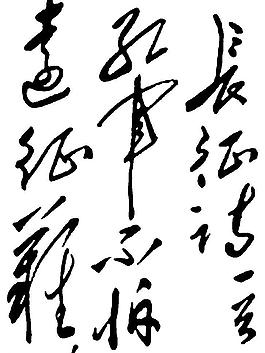 長征詩一首
紅軍不怕
遠征難